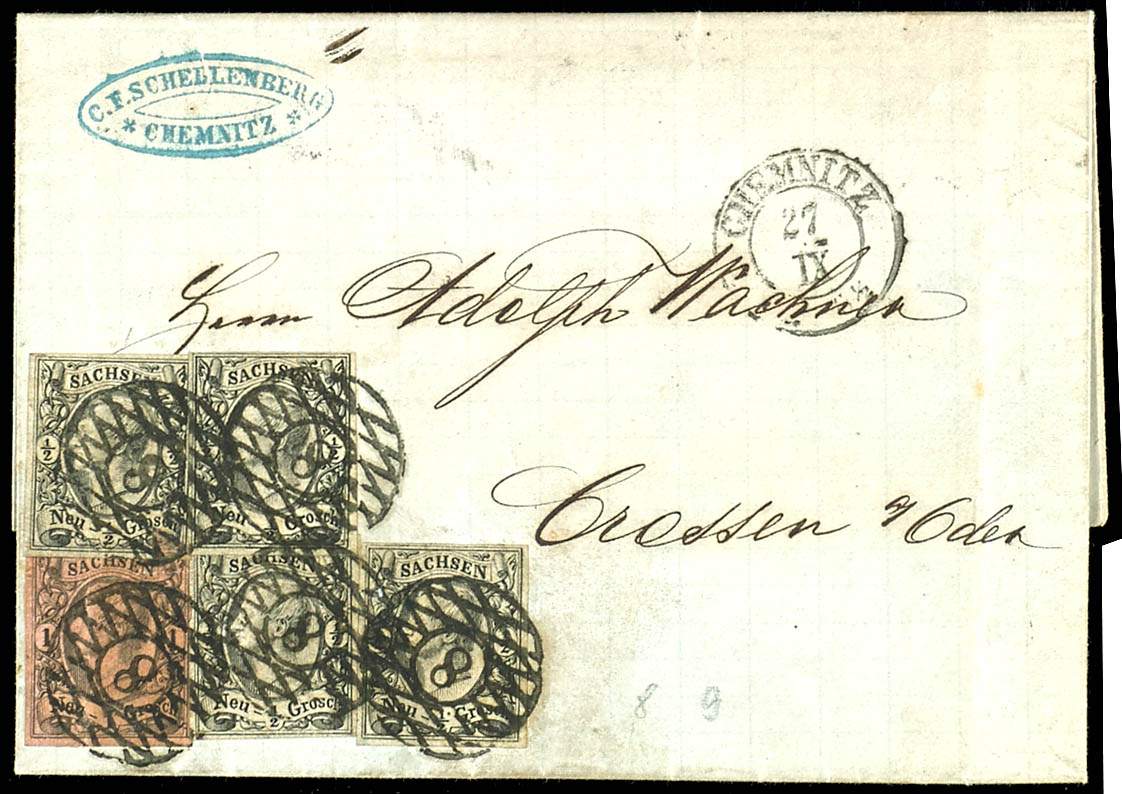 C. F. SCHELLENBERG
* CHEMNITZ *
CHEMNITZ
27
IX
*
Herrn Adolph Wachner
Crossen a/Oder
SACHSEN
½ ½
Neu - ½ Grosch
SACHSEN
½
Neu ½ Grosch
8
8
SACHSEN
1 1
Neu - 1 Grosch
8
½
Neu - ½ Grosch
8
SACHSEN
½
Neu - ½ Grosch
8
8 9